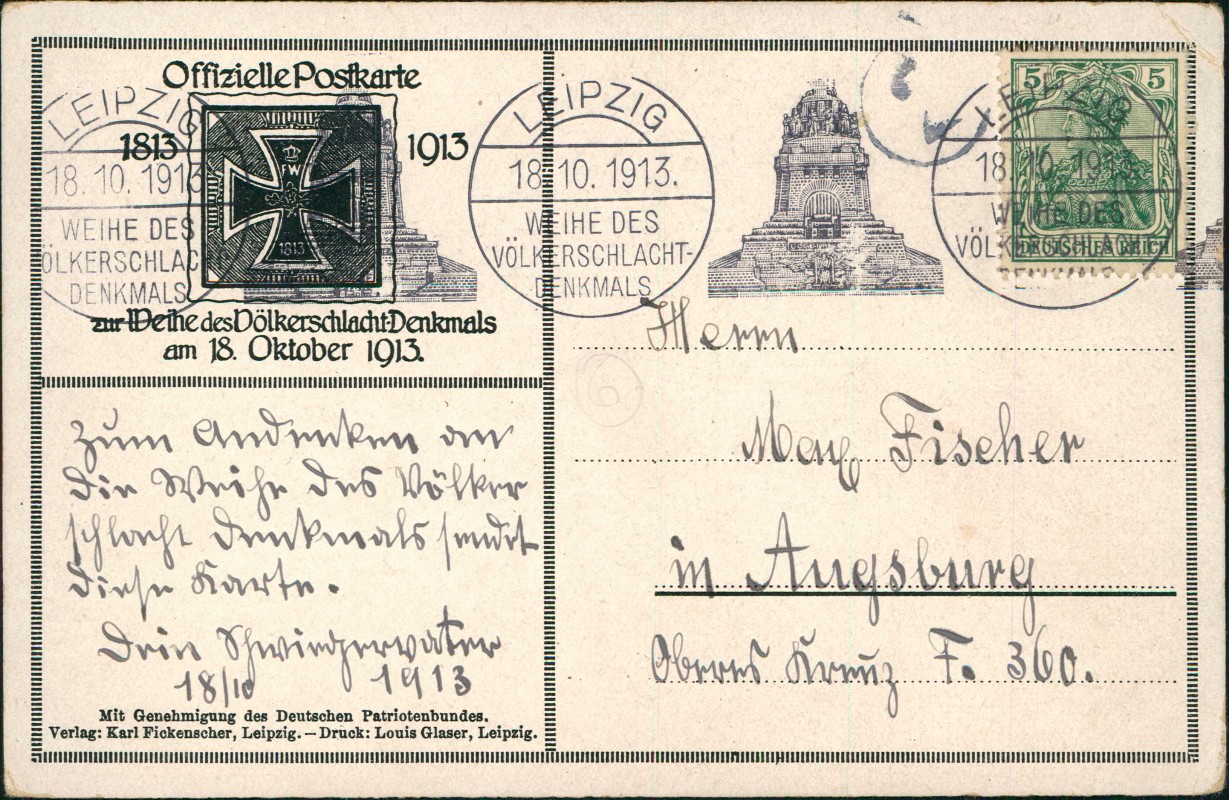 Offizielle Postkarte
1813 1913
W
1813
zur Weihe des Völkerschlacht-Denkmals
am 18. Oktober 1913.
LEIPZIG
18.10.1913
WEIHE DES
ÖLKERSCHLAC
DENKMALS
LEIPZIG
18.10.1913.
WEIHE DES
VÖLKERSCHLACHT-
DENKMALS
LEIPZIG
18.10.1913
WEIHE DES
5 5
DEUTSCHES REICH
Zum Andenken an
die Weihe des Völker
schlacht Denkmals sendet
diese Karte.
Dein Schwiegervater
18/10 1913
Mit Genehmigung des Deutschen Patriotenbundes.
Verlag: Karl Fickenscher, Leipzig. – Druck: Louis Glaser, Leipzig.
Herrn
Max Fischer
in Augsburg
Oberes Kreuz F. 360.
6